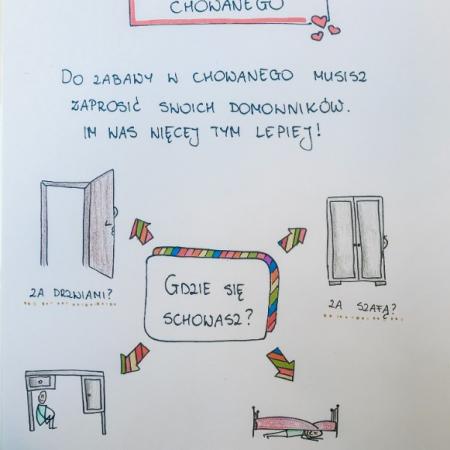 CHOWANEGO
DO ZABAWY W CHOWANEGO MUSISZ
ZAPROSIĆ SWOICH DOMOWNIKÓW.
IM WAS WIĘCEJ TYM LEPIEJ!
ZA DRZWIAMI?
ZA SZAFĄ?
GDZIE SIĘ
SCHOWASZ?